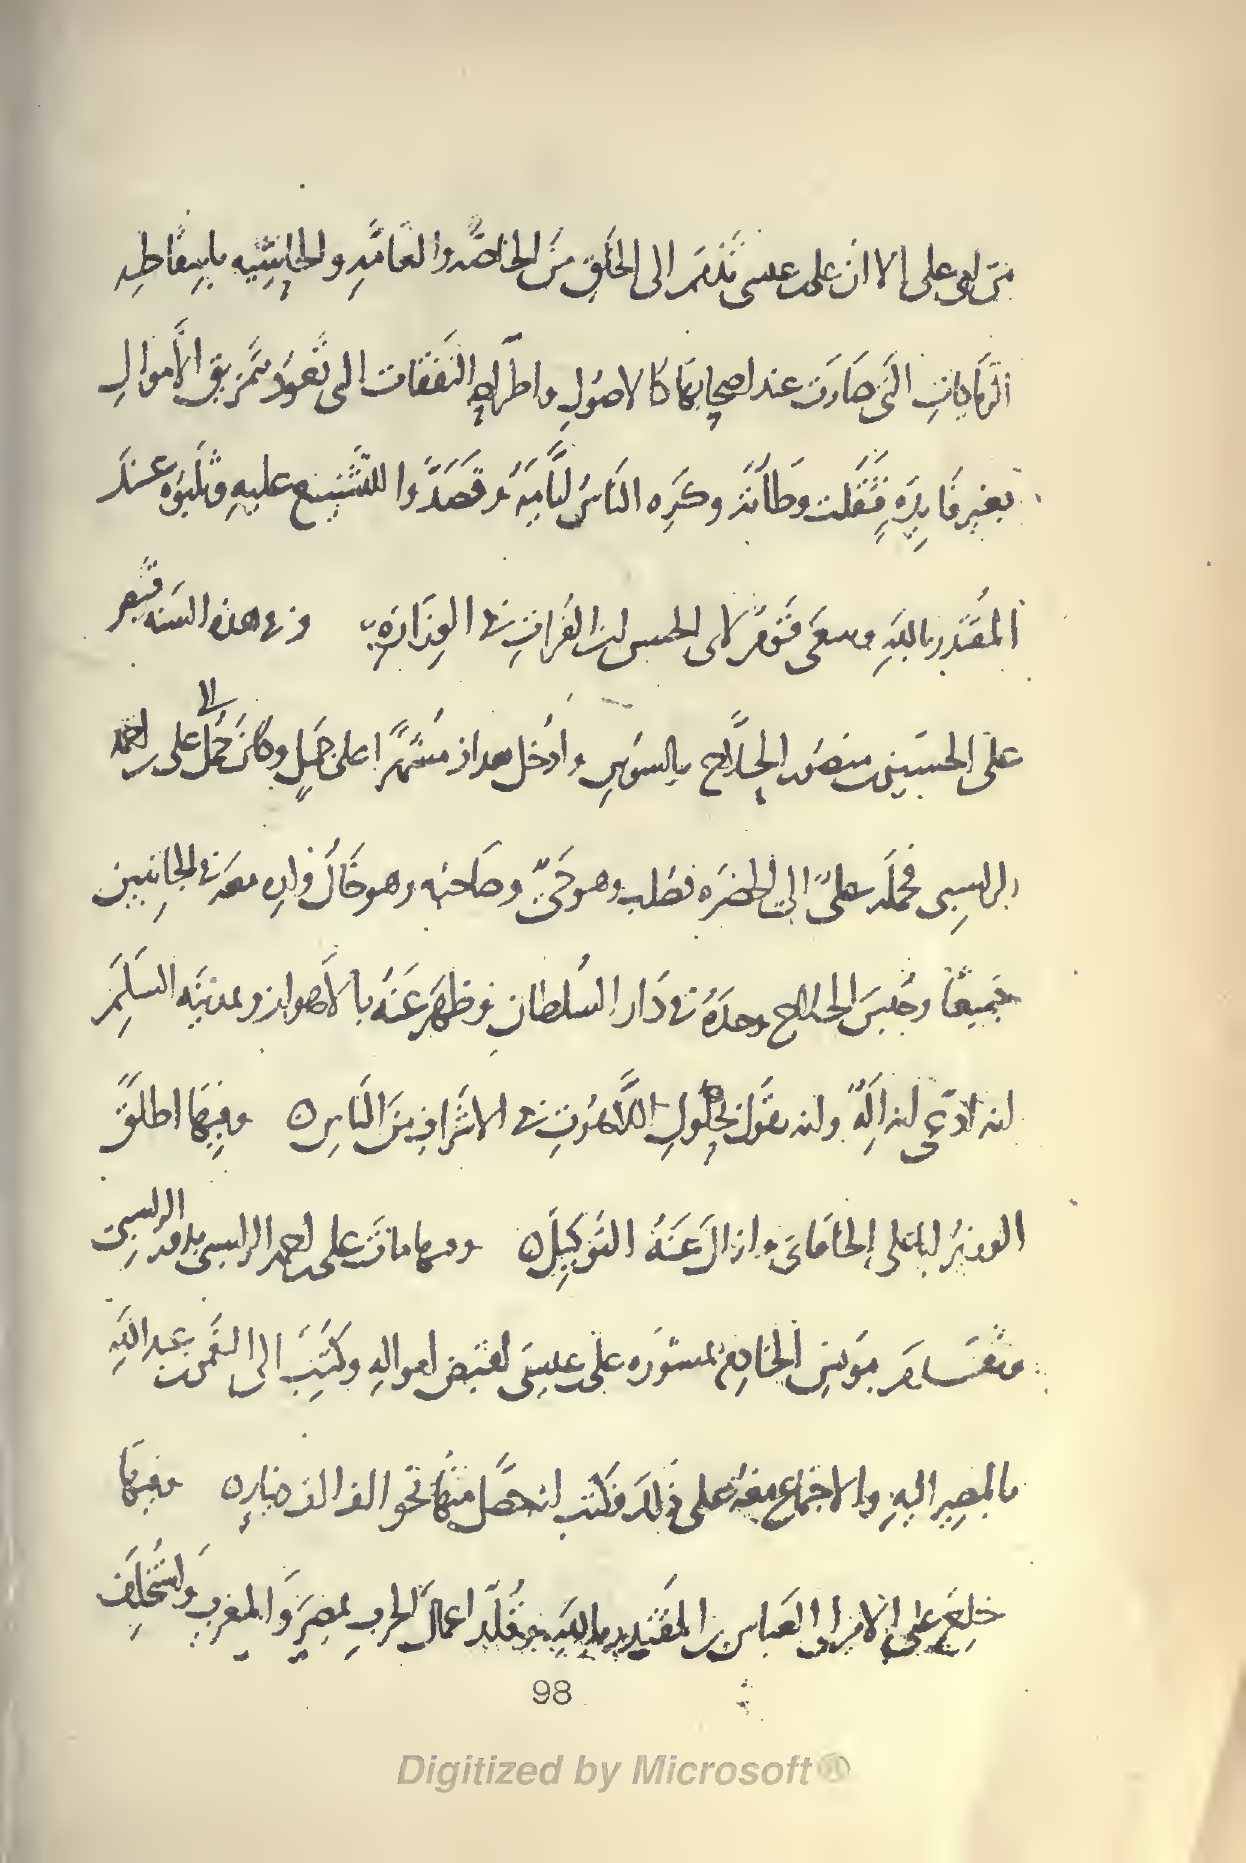 الا ان علی بن عیسی ثَقُلَ الی الخلق مِنَ الخاصّه والعَامّه والحاشِیه باسِقاطِه
الزِیاداتِ التی صَارَت عند اصحابها کالاصُولِ واطّراحِهِ النفَقات التی تَعودُ بتَمزیق الأموالِ
بغیرِ فَایدَهٍ فثَقُلت وَطأَتُهُ وکَرِه النَاسُ ایّامَهُ وقَصَدُوا للتشنیع علیهِ وثَلبُوه عندَ
المُقتدر باللهِ وسعَی قَومٌ لابی الحسن بن الفُراتِ فی الوِزَارَهِ وفی هذه السَنه قُبِضَ
علی الحسین بن منصُور الحلّاج بالسوسِ وادُخل بغداد مُشهّرًا علی جَملٍ وکان حُمل الی علی بن احمد
الراسِبی فحمَلَه علیٌّ الی الحضرَه فصُلب وهو حَیٌّ وصَاحبُه وهو خَالُ وَلدِه معَه فی الجانِبین
جَمیعًا وحُبِسَ الحلاج وحدَهُ فی دَار السُلطانِ وظهَر عَنهُ بالأهواز وبمدینَه السلَم
انه ادّعی انه اِلَهٌ وانه یقُول بحُلُولِ اللّاهُوتِ فی الاشرَافِ مِنَ النَاسِ ٥ وفِیهَا اطلَقَ
الوزیرُ ابا علی الخاقانی وازالَ عَنهُ التَوکِیلَ ٥ وفیها ماتَ علی بن احمد الراسبی بدُور الراسِبی
وتقدّم مونِس الخادِم بمشورَه علی بن عیسَی لقبضِ اموالهِ وکُتِبَ الی النعمان بن عبد اللهِ
بالمصِیرِ الیهِ والاجتماع معَهُ علی ذلک فکَتب انه حصّل منها نَحو الف الف دینارٍ ٥ وفِیهَا
خلِعَ علی الامیر ابی العَباس بن المقتدِر باللهِ وقُلّد اعمالَ الحرب بمصرَ والمغرب واستُخلِفَ
98
Digitized by Microsoft®